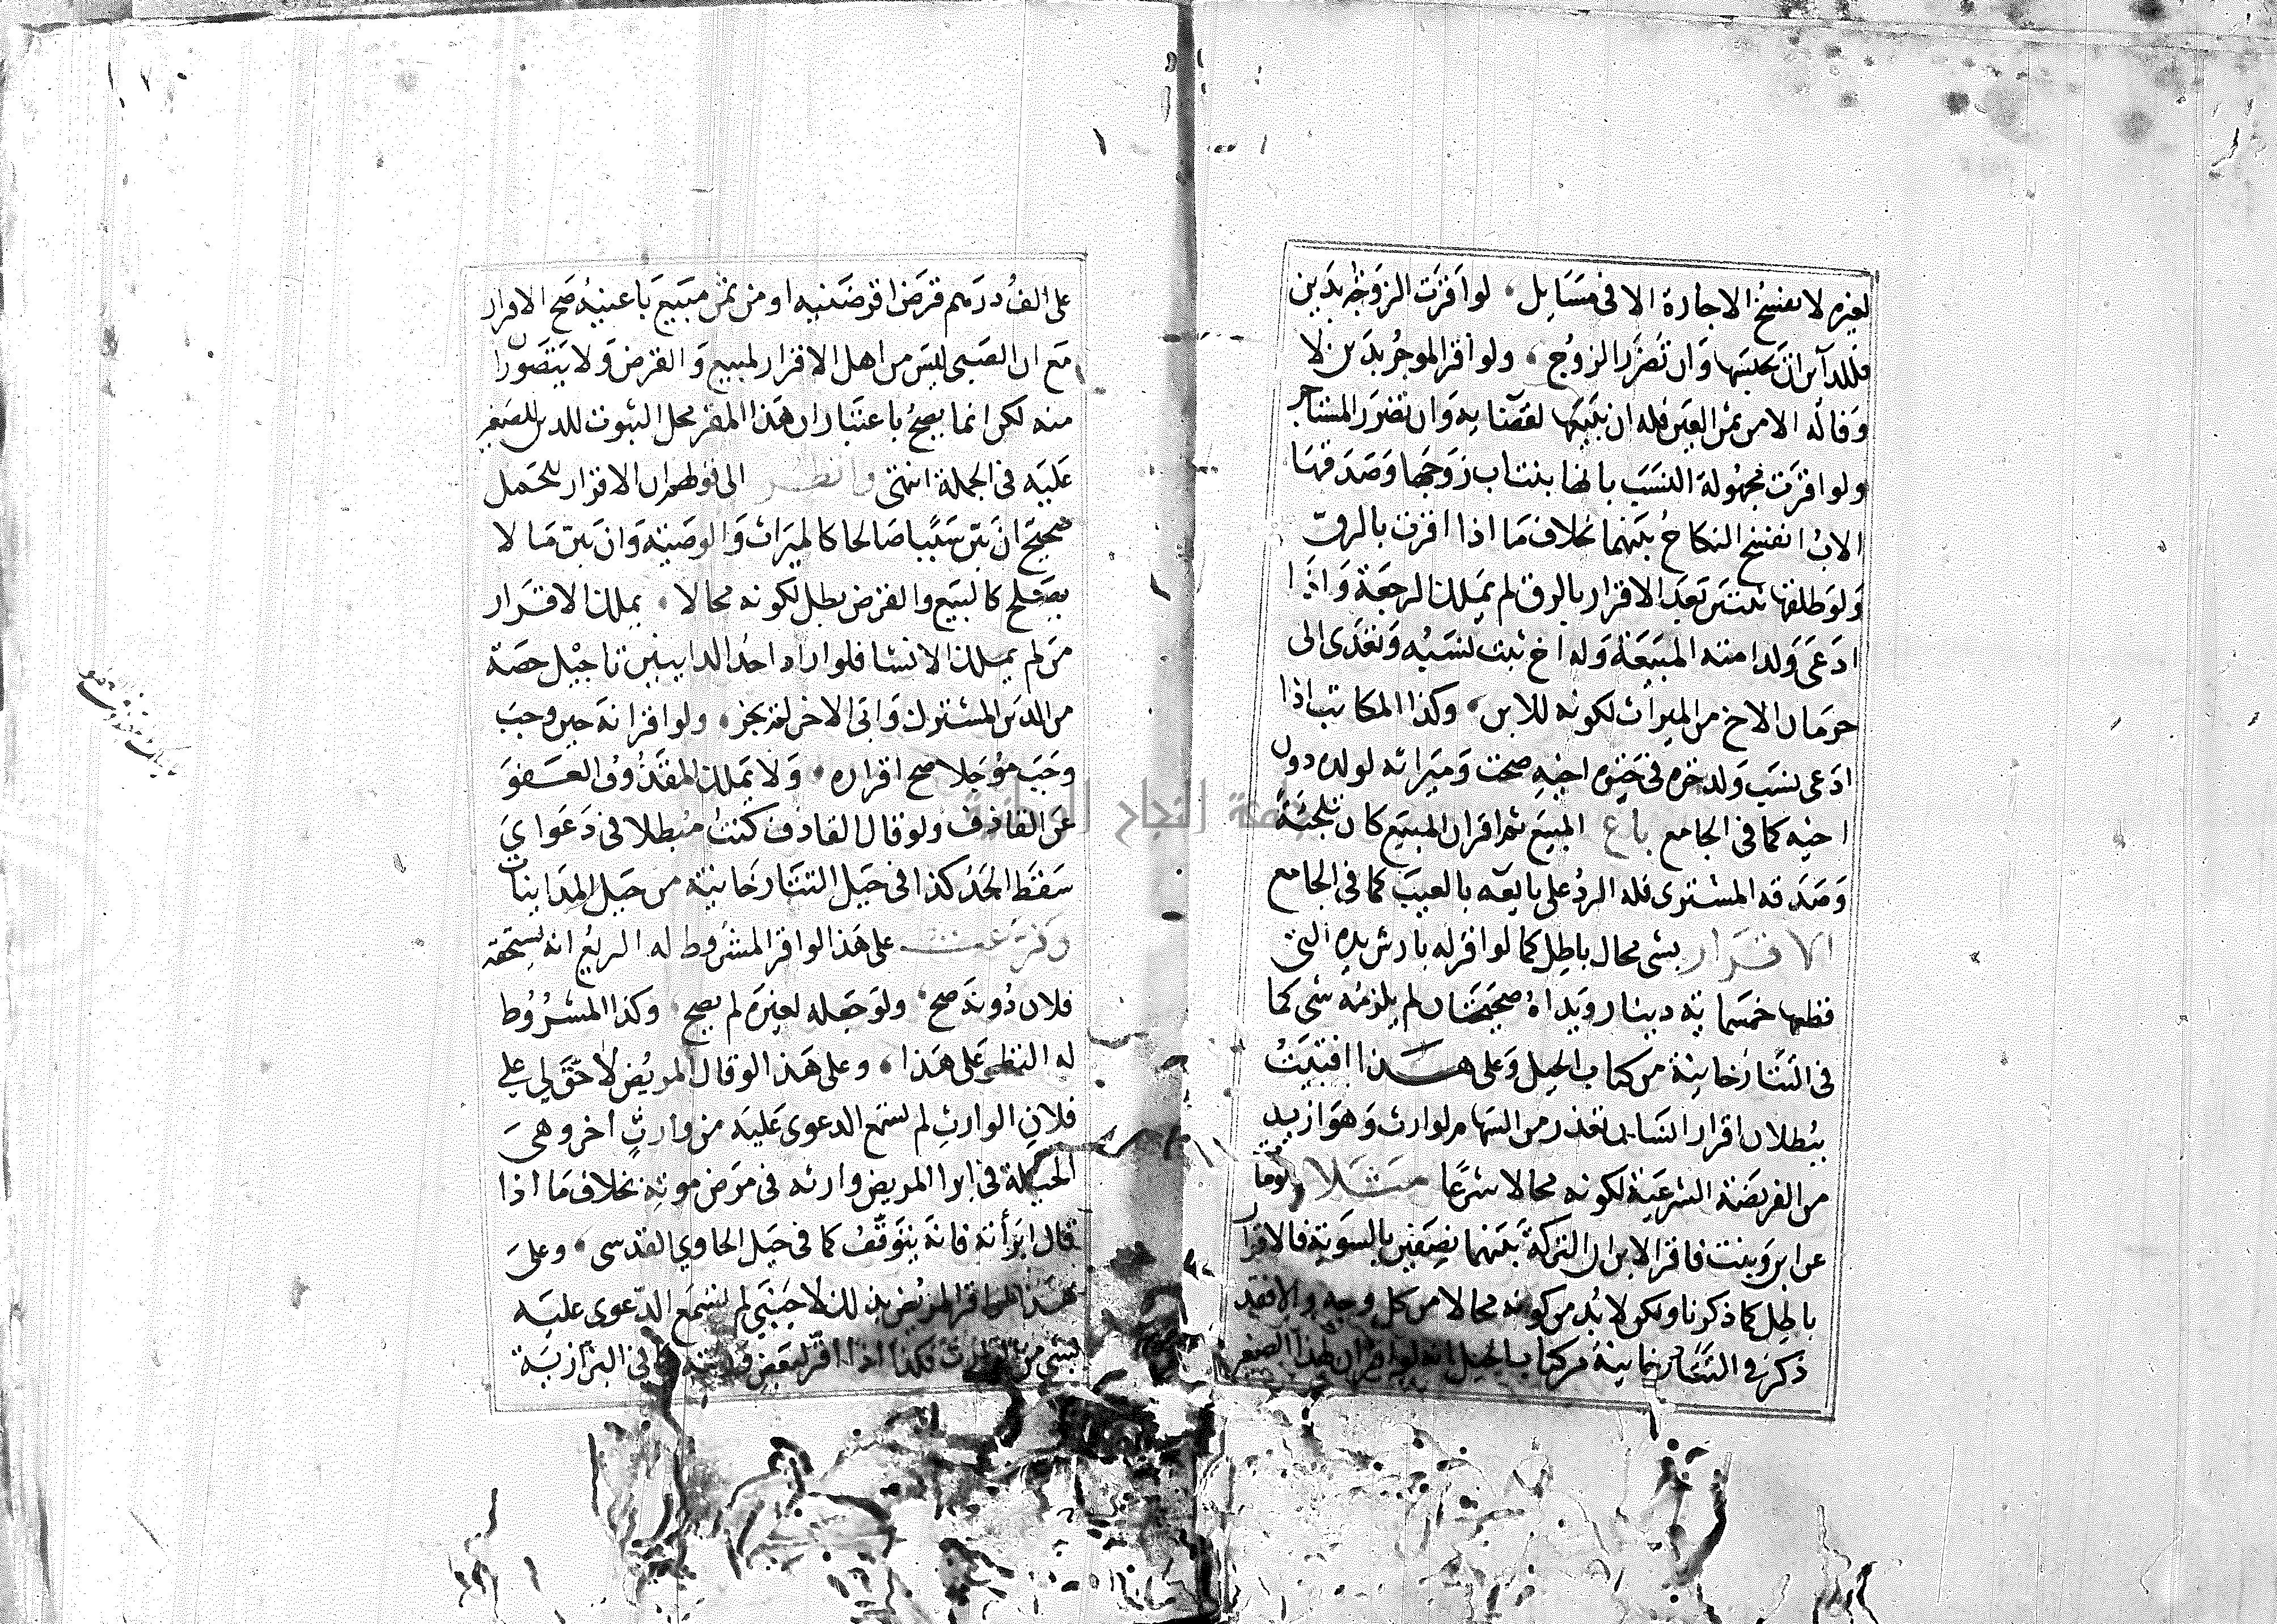 لغيره لا تفسخ الاجارة الا في مسايل لو اقرت الزوجة بدين
فللداين ان يحبسها وان تضرر الزوج ولو اقر الموجر بدين لا
وفا له الا من ثمن العين فله ان يبيعها لقضايه وان تضرر المستاجر
ولو اقرت مجهولة النسب بانها بنت اب زوجها وصدقها
الاب انفسخ النكاح بينهما بخلاف ما اذا اقرت بالرق
ولو طلقها ثنتين بعد الاقرار بالرق لم يملك الرجعة واذا
ادعى ولد امته المبيعة وله اخ ثبت نسبه وتعدى الى
حرمان الاخ من الميراث لكونه للابن وكذا المكاتب اذا
ادعى نسب ولد حرة في حيوة اخيه صحت وميراثه لولده دون
اخيه كما في الجامع باع المبيع ثم اقر ان المبيع كان تلجئة
وصدقه المشتري فله الرد على بايعه بالعيب كما في الجامع
الاقرار بشي محال باطل كما لو اقر له بارش يده التي
قطعها خمسماية دينار ويداه صحيحتان لم يلزمه شي كما
في التتارخانية من كتاب الحيل وعلى هذا افتيت
ببطلان اقرار انسان بقدر من السهام لوارث وهو ازيد
من الفريضة الشرعية لكونه محالا شرعا مثلا لومات
عن ابن وبنت فاقر الابن ان التركة بينهما نصفين بالسوية فالاقرار
باطل كما ذكرنا ولكن لا بد من كونه محالا من كل وجه والا فقد
ذكر في التتارخانية من كتاب الحيل انه لو اقر ان لهذا الصغير
على الف درهم قرض اقرضنيه او من ثمن مبيع باعنيه صح الاقرار
مع ان الصبي ليس من اهل الاقرار لمبيع والقرض ولا يتصوران
منه لكن انما يصح باعتبار ان هذا المقر محل الثبوت للدين للصغير
عليه في الجملة انتهى وانظر الى قولهم ان الاقرار للحمل
صحيح ان بين سببا صالحا كالميراث والوصية وان بين ما لا
يصلح كالبيع والقرض بطل لكونه محالا يملك الاقرار
من لم يملك الانشا فلو اراد احد الداينين تاجيل حصة
من الدين المشترك وابى الاخر لم يجز ولو اقر انه حين وجب
وجب موجلا صح اقراره ولا يملك المقذوف العفو
عن القاذف ولو قال القاذف كنت مبطلا في دعواي
سقط الحد كذا في حيل التتارخانية من حيل المداينات
وفرعت على هذا لو اقر المشروط له الريع انه يستحقه
فلان دونه صح ولو جعله لغيره لم يصح وكذا المشروط
له النظر على هذا وعلى هذا لو قال المريض لا حق لي على
فلان الوارث لم تسمع الدعوى عليه من وارث اخر وهي
الحيلة في ابرا المريض وارثه في مرض موته بخلاف ما اذا
قال ابرأته فانه يتوقف كما في حيل الحاوي القدسي وعلى
هذا لو اقر المريض بذلك لاجنبي لم تسمع الدعوى عليه
بشي من الوارث فكذا اذا اقر لبعض ورثته كما في البزازية